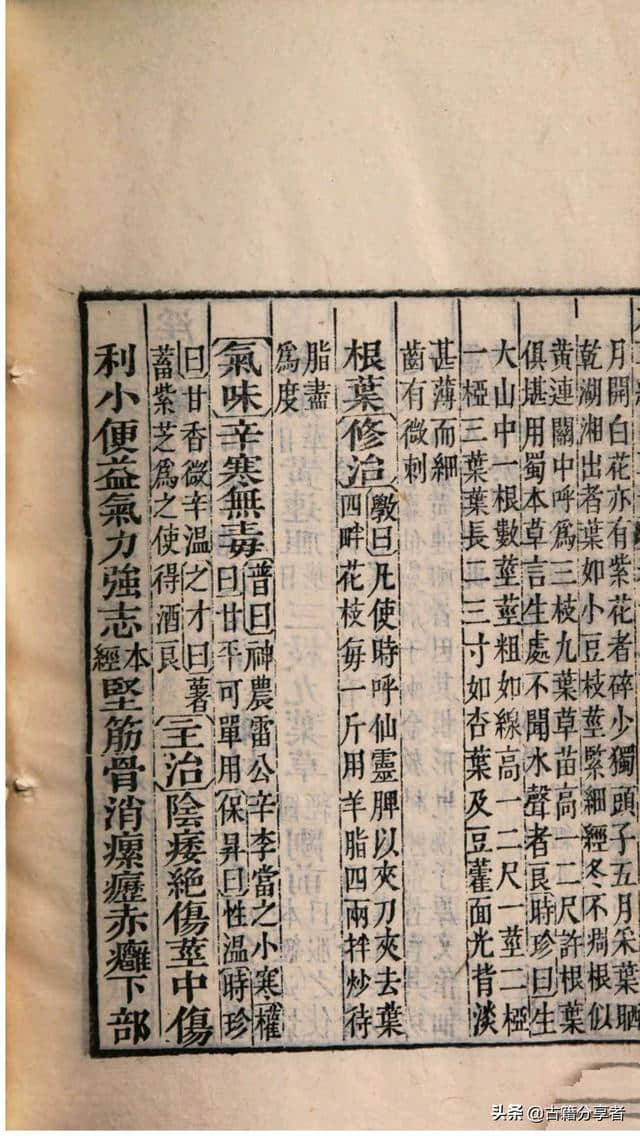 月開白花亦有紫花者碎少獨頭子五月采葉晒
乾湖湘出者葉如小豆枝莖緊細經冬不凋根似
黃連關中呼爲三枝九葉草苗高一二尺許根葉
俱堪用蜀本草言生處不聞水聲者良時珍曰生
大山中一根數莖莖粗如線高一二尺一莖二椏
一椏三葉葉長二三寸如杏葉及豆藿面光背淡
甚薄而細
齒有微刺
根葉修治斆曰凡使時呼仙靈脾以夾刀夾去葉
四畔花枝每一斤用羊脂四兩拌炒待
脂盡
爲度
氣味辛寒無毒普曰神農雷公辛李當之小寒權
曰甘平可單用保昇曰性溫時珍
曰甘香微辛溫之才曰薯
蓄紫芝爲之使得酒良主治陰痿絕傷莖中傷
利小便益氣力強志本經堅筋骨消瘰癧赤癰下部
头条 @古籍分享者